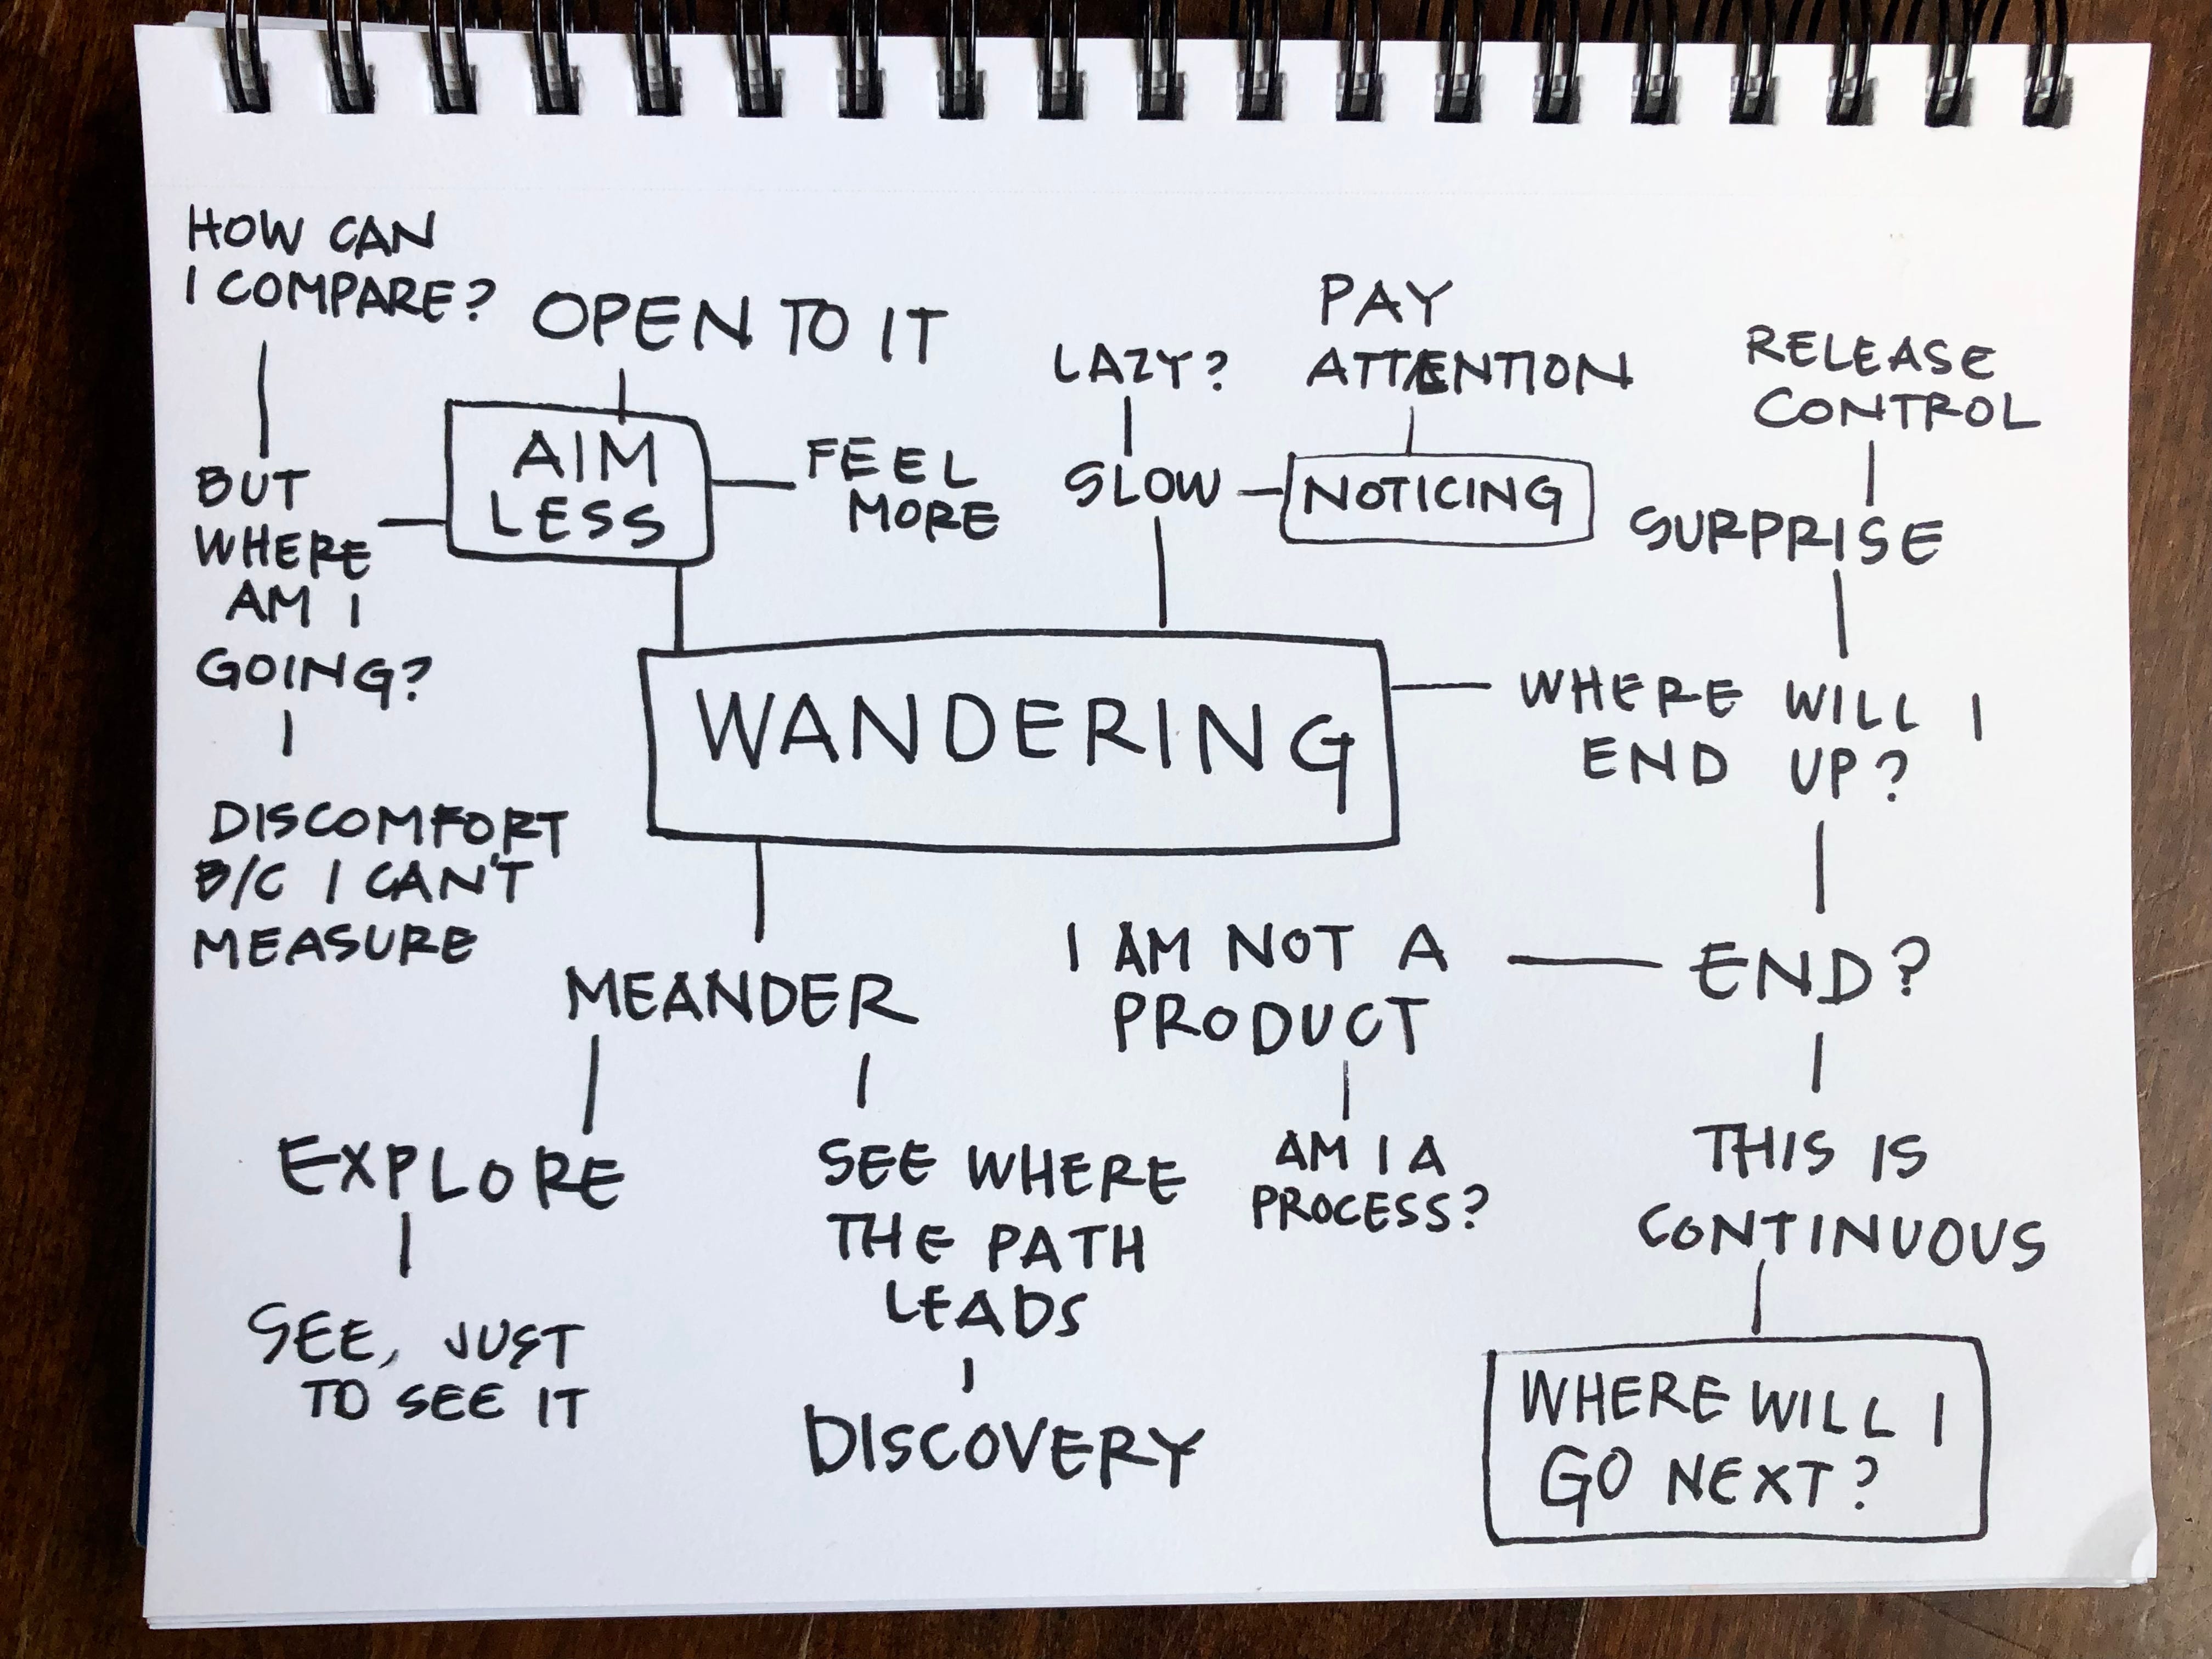 HOW CAN
I COMPARE?
OPEN TO IT
AIM
LESS
FEEL
MORE
BUT
WHERE
AM I
GOING?
DISCOMFORT
B/C I CAN'T
MEASURE
LAZY?
SLOW
PAY
ATTENTION
NOTICING
RELEASE
CONTROL
SURPRISE
WANDERING
WHERE WILL I
END UP?
END?
I AM NOT A
PRODUCT
AM I A
PROCESS?
THIS IS
CONTINUOUS
WHERE WILL I
GO NEXT?
MEANDER
EXPLORE
SEE, JUST
TO SEE IT
SEE WHERE
THE PATH
LEADS
DISCOVERY